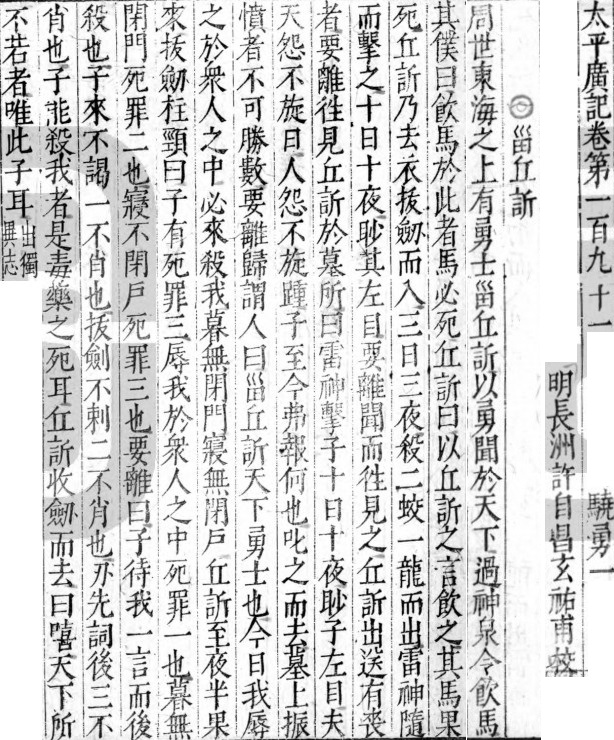 太平廣記卷第一百九十一　驍勇一
明長洲許自昌玄祐甫校
甾丘訢
周世東海之上有勇士甾丘訢以勇聞於天下過神泉令飲馬
其僕曰飲馬於此者馬必死丘訢曰以丘訢之言飲之其馬果
死丘訢乃去衣拔劒而入三日三夜殺二蛟一龍而出雷神隨
而擊之十日十夜眇其左目要離聞而徃見之丘訢出送有喪
者要離徃見丘訢於墓所曰雷神擊子十日十夜眇子左目夫
天怨不旋日人怨不旋踵子至今弗報何也叱之而去墓上振
憤者不可勝數要離歸謂人曰甾丘訢天下勇士也今日我辱
之於衆人之中必來殺我暮無閉門寢無閉戶丘訢至夜半果
來拔劒柱頸曰子有死罪三辱我於衆人之中死罪一也暮無
閉門死罪二也寢不閉戶死罪三也要離曰子待我一言而後
殺也子來不謁一不肖也拔劍不刺二不肖也刃先詞後三不
肖也子能殺我者是毒藥之死耳丘訢收劒而去曰嘻天下所
不若者唯此子耳出獨異志